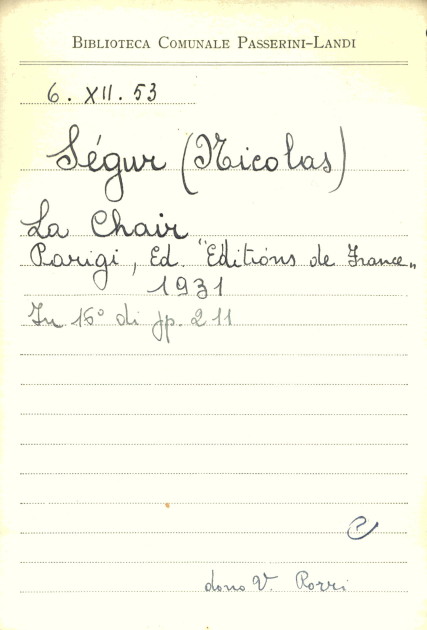 BIBLIOTECA COMUNALE PASSERINI-LANDI
6. XII. 53
Ségur (Nicolas)
La Chair
Parigi, Ed. "Editions de France„
1931
In 16° di pp. 211
dono V.